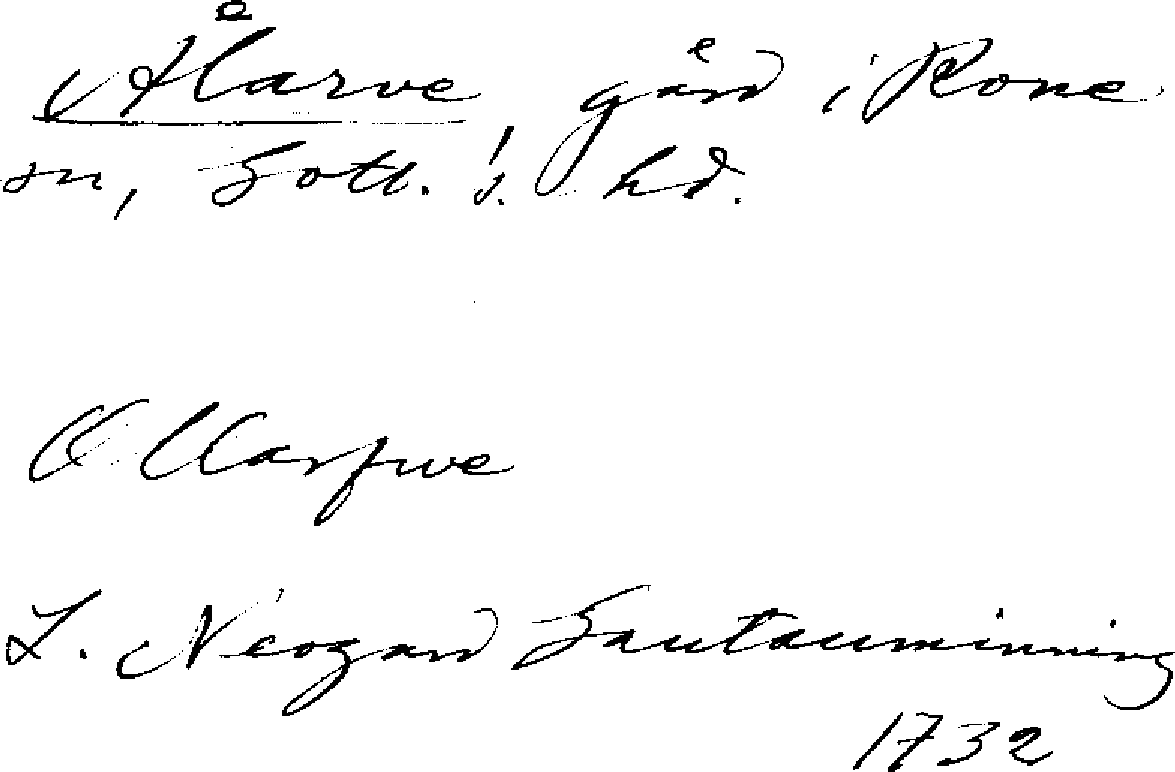 Ålarve, gård i Rone
sn, Gotl. s. hd.
Ollarfwe
L. Neogard Gautauminning
1732